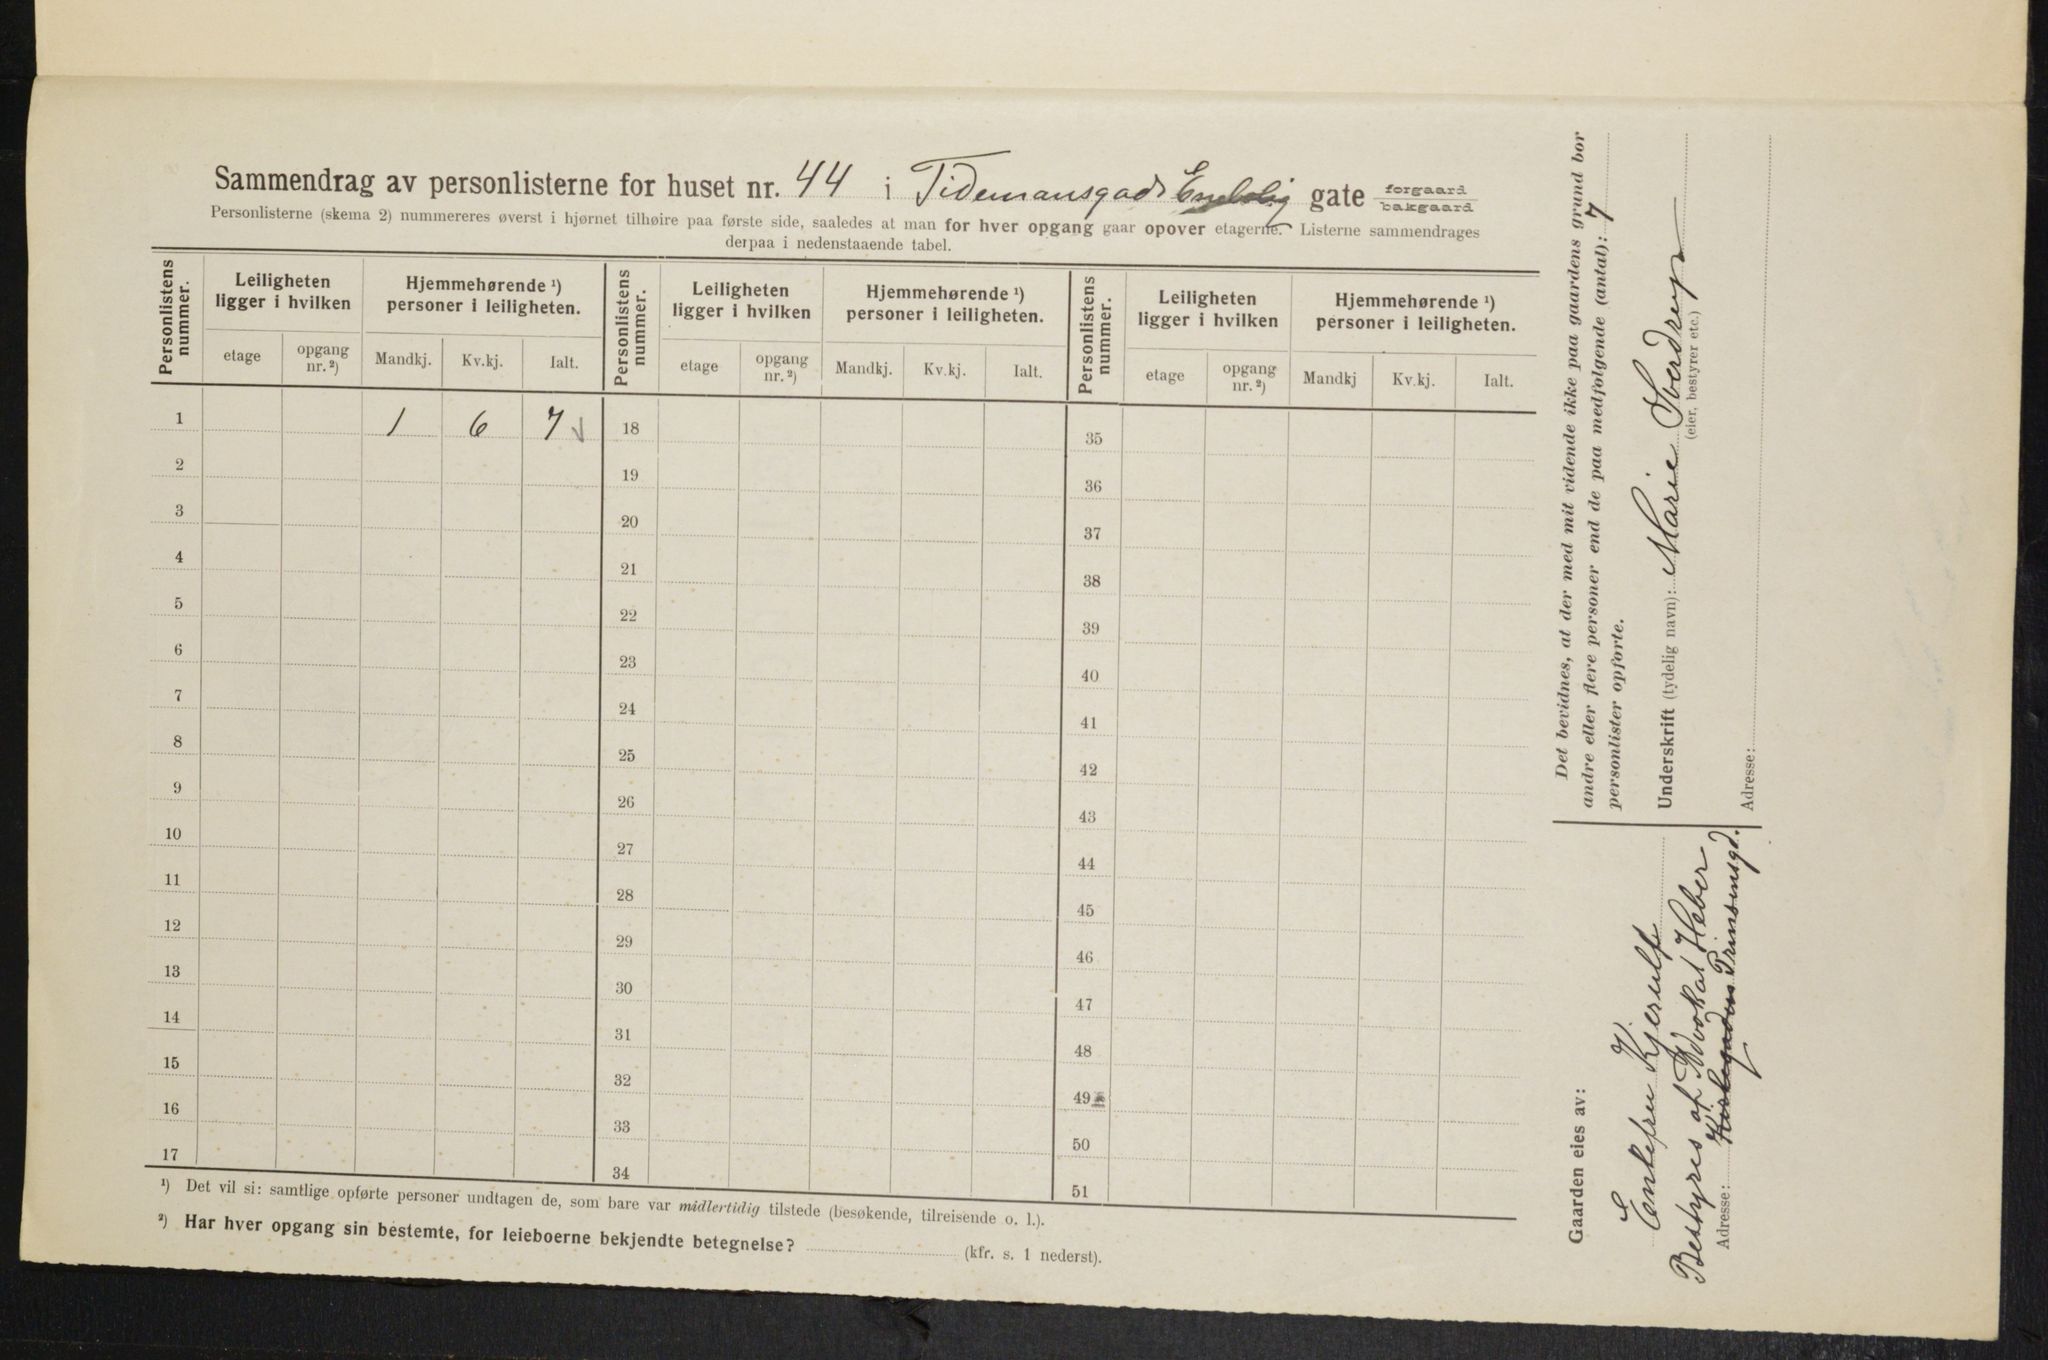 Sammendrag av personlisterne for huset nr. 44 i Tidemansgade Enebolig gate forgaard bakgaard
Personlisterne (skema 2) nummereres øverst i hjørnet tilhøire paa første side, saaledes at man for hver opgang gaar opover etagerne. Listerne sammendrages
derpaa i nedenstaaende tabel.
Personlistens nummer. Leiligheten ligger i hvilken Hjemmehørende ¹) personer i leiligheten. Personlistens nummer. Leiligheten ligger i hvilken Hjemmehørende ¹) personer i leiligheten. Personlistens nummer. Leiligheten ligger i hvilken Hjemmehørende ¹) personer i leiligheten.
etage opgang nr. ²) Mandkj. Kv.kj. Ialt. etage opgang nr. ²) Mandkj. Kv.kj. Ialt. etage opgang nr. ²) Mandkj Kv.kj. Ialt.
1 1 6 7 18 35
2 19 36
3 20 37
4 21 38
5 22 39
6 23 40
7 24 41
8 25 42
9 26 43
10 27 44
11 28 45
12 29 46
13 30 47
14 31 48
15 32 49
16 33 50
17 34 51
¹) Det vil si: samtlige opførte personer undtagen de, som bare var midlertidig tilstede (besøkende, tilreisende o. l.).
²) Har hver opgang sin bestemte, for leieboerne bekjendte betegnelse? (kfr. s. 1 nederst).
Det bevidnes, at der med mit vidende ikke paa gaardens grund bor
andre eller flere personer end de paa medfølgende (antal): 7
personlister opførte.
Underskrift (tydelig navn): Marie Sverdrup
(eier, bestyrer etc.)
Adresse:
Gaarden eies av:
Enkefru Kjerulf
Bestyres af Advokat Heber
Adresse: Kirkegaden Prinsensgd.